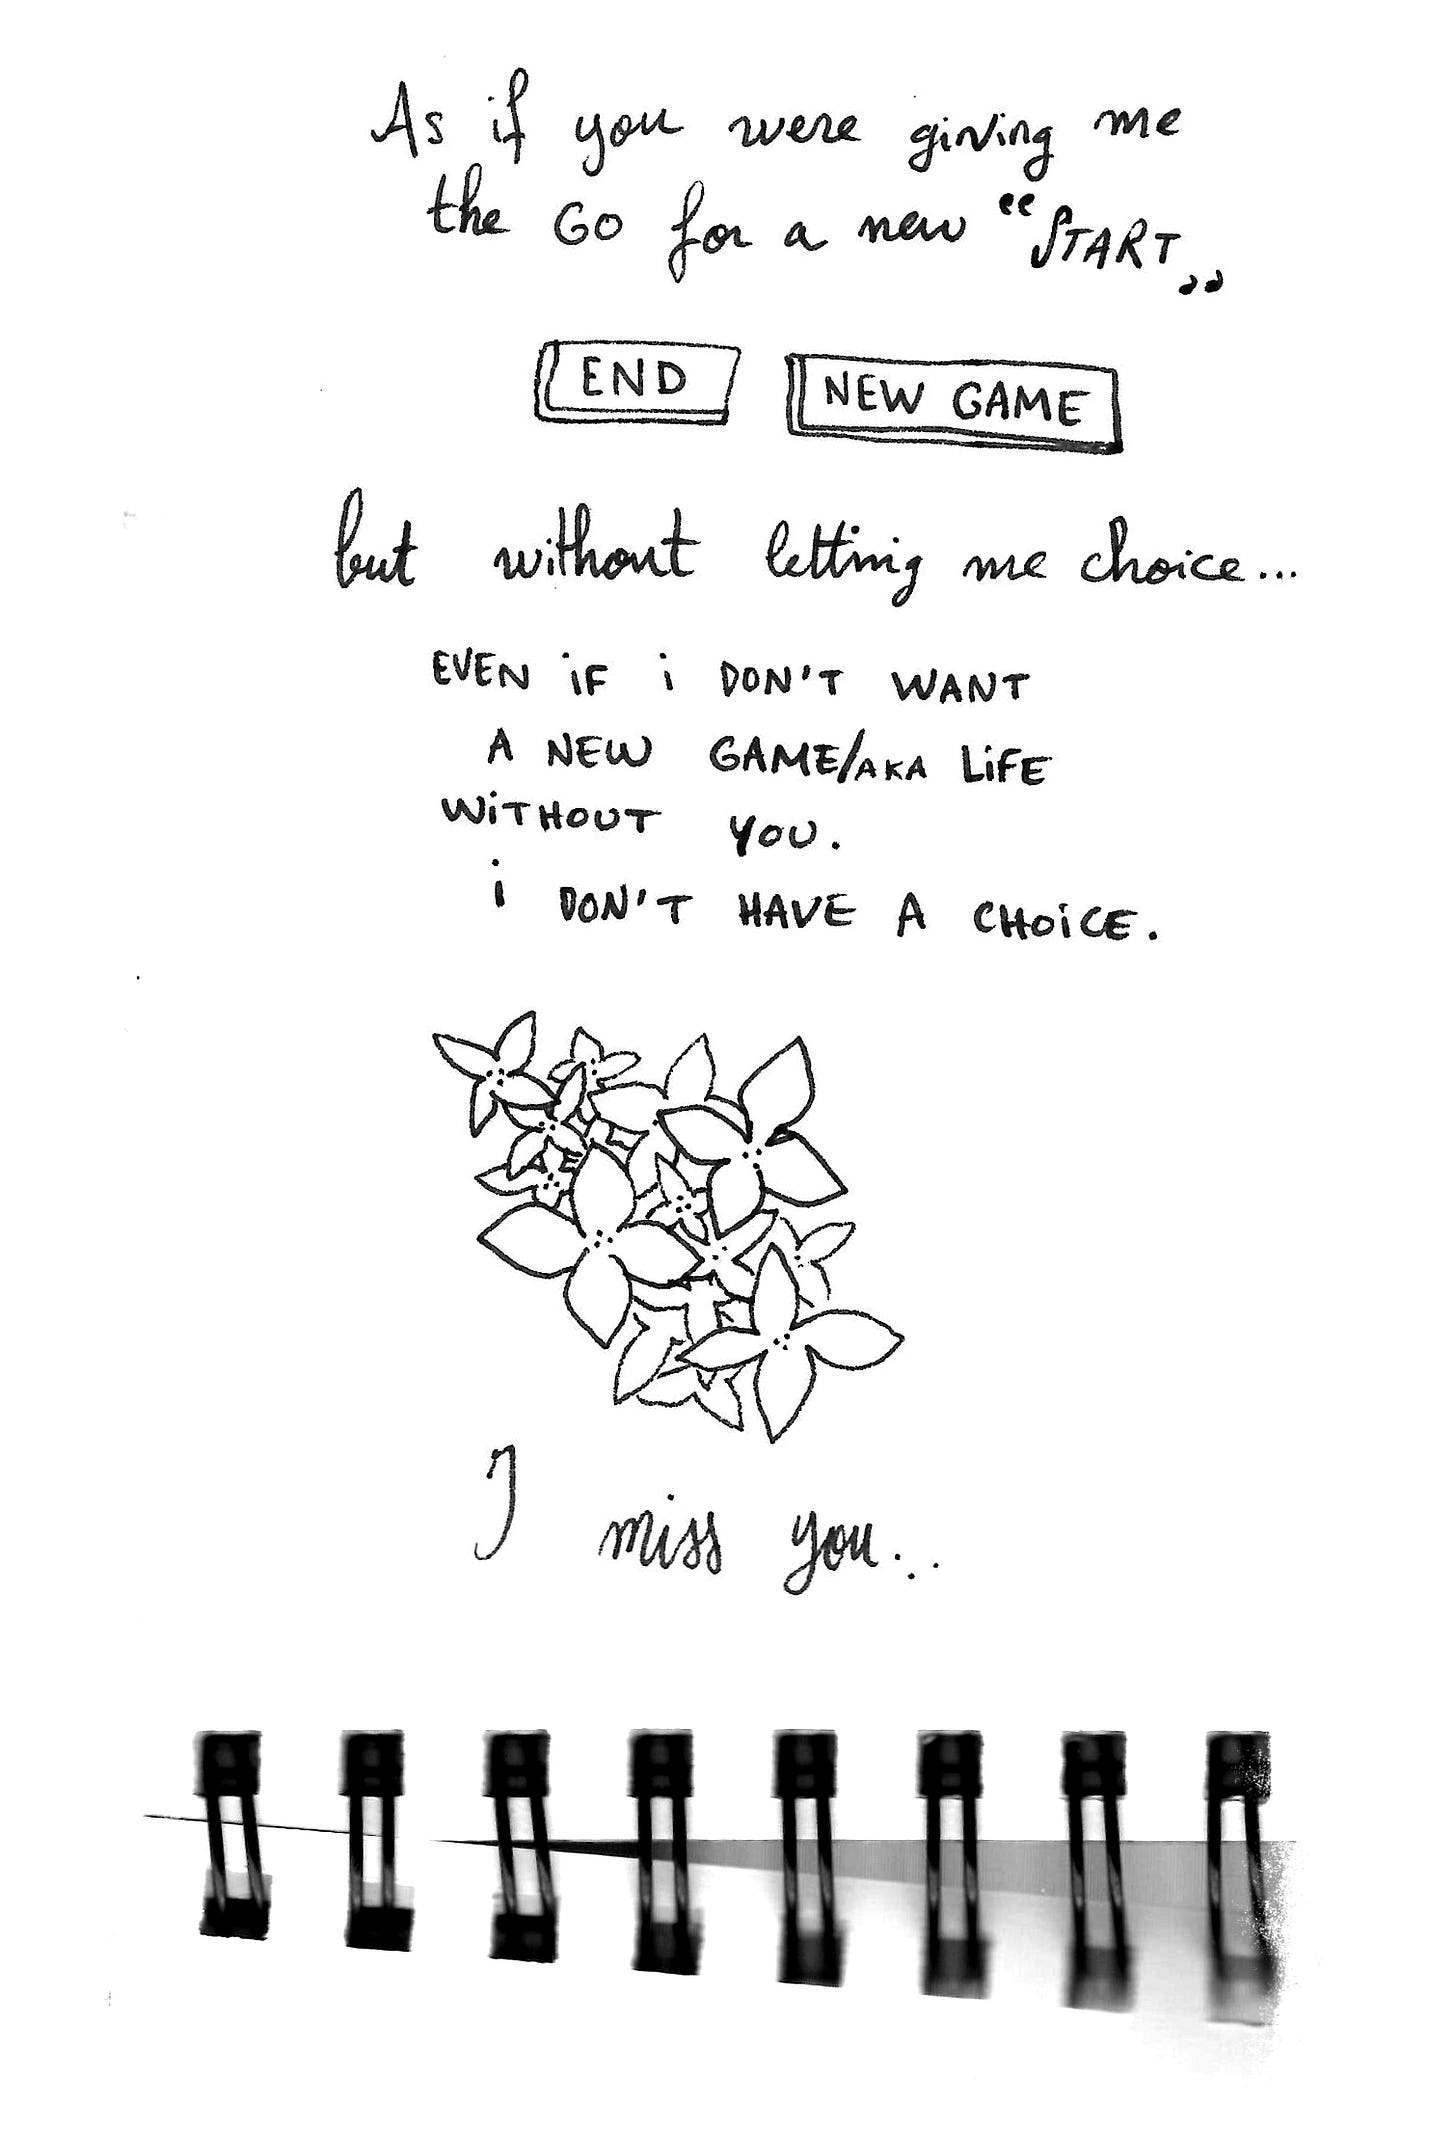 As if you were giving me
the GO for a new “START„
END NEW GAME
but without letting me choice...
EVEN iF i DON'T WANT
A NEW GAME/AKA LiFE
WiTHOUT YOU.
i DON'T HAVE A CHOiCE.
I miss you...